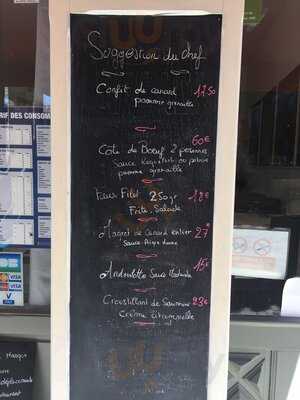 Suggestion du chef
Confit de canard 17.50
pomme grenaille
60€
Côte de Boeuf 2 personnes
Sauce Roquefort ou poivre
pomme grenaille
Faux Filet 250gr 18€
Frite, Salade
Magret de Canard entier 27€
Sauce Aigre douce
Andouillette Sauce Moutarde 15€
Croustillant de Saumon 23€
Crème Citronnelle
RIF DES CONSOM
VISA